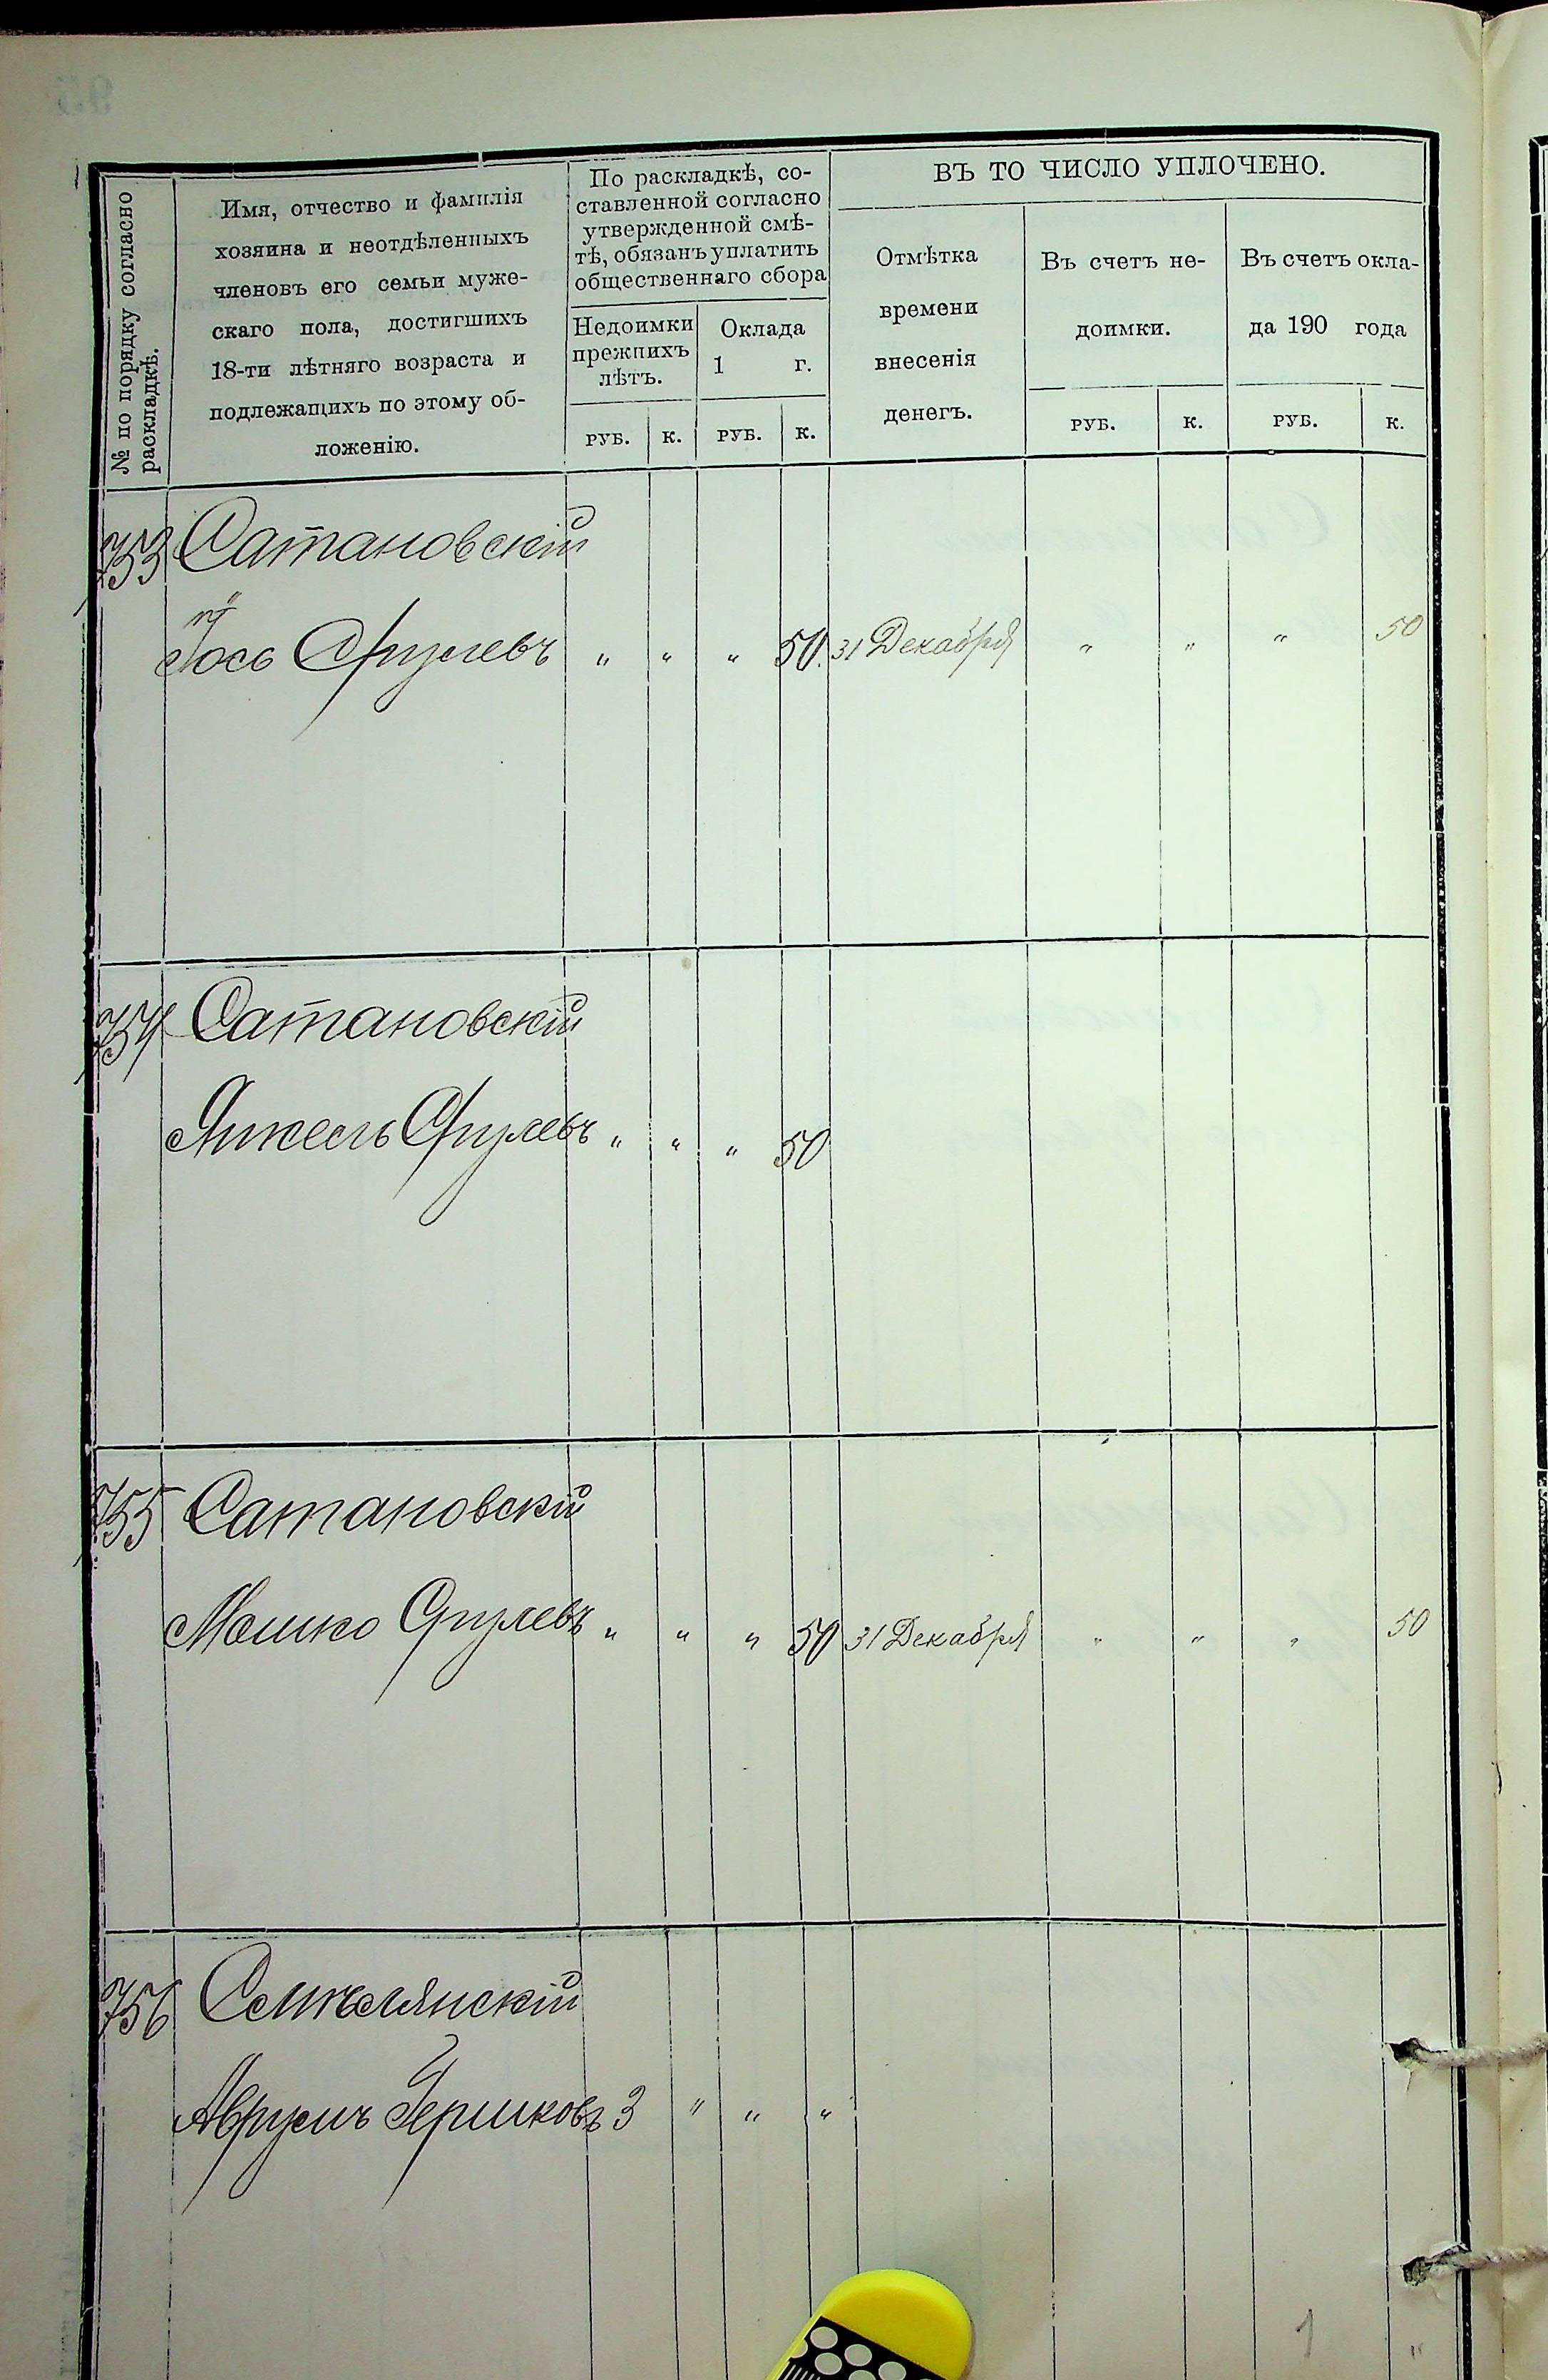 № по порядку согласно
раскладкѣ.
Имя, отчество и фамилія
хозяина и неотдѣленныхъ
членовъ его семьи муже-
скаго пола, достигшихъ
18-ти лѣтняго возраста и
подлежащихъ по этому об-
ложенію.
По раскладкѣ, со-
ставленной согласно
утвержденной смѣ-
тѣ, обязанъ уплатить
общественнаго сбора
Недоимки
прежнихъ
лѣтъ.
Оклада
1 г.
РУБ. К. РУБ. К.
ВЪ ТО ЧИСЛО УПЛОЧЕНО.
Отмѣтка
времени
внесенія
денегъ.
Въ счетъ не-
доимки.
Въ счетъ окла-
да 190 года
РУБ. К. РУБ. К.
753 Сатановскій
Іось Срулевъ " " " 50. 31 Декабря " " " 50
754 Сатановскій
Анкель Срулевъ " " " 50
755 Сатановскій
Мошко Срулевъ " " " 50 31 Декабря " " " 50
756
Аврумъ Гершковъ 3 " " "
1 "